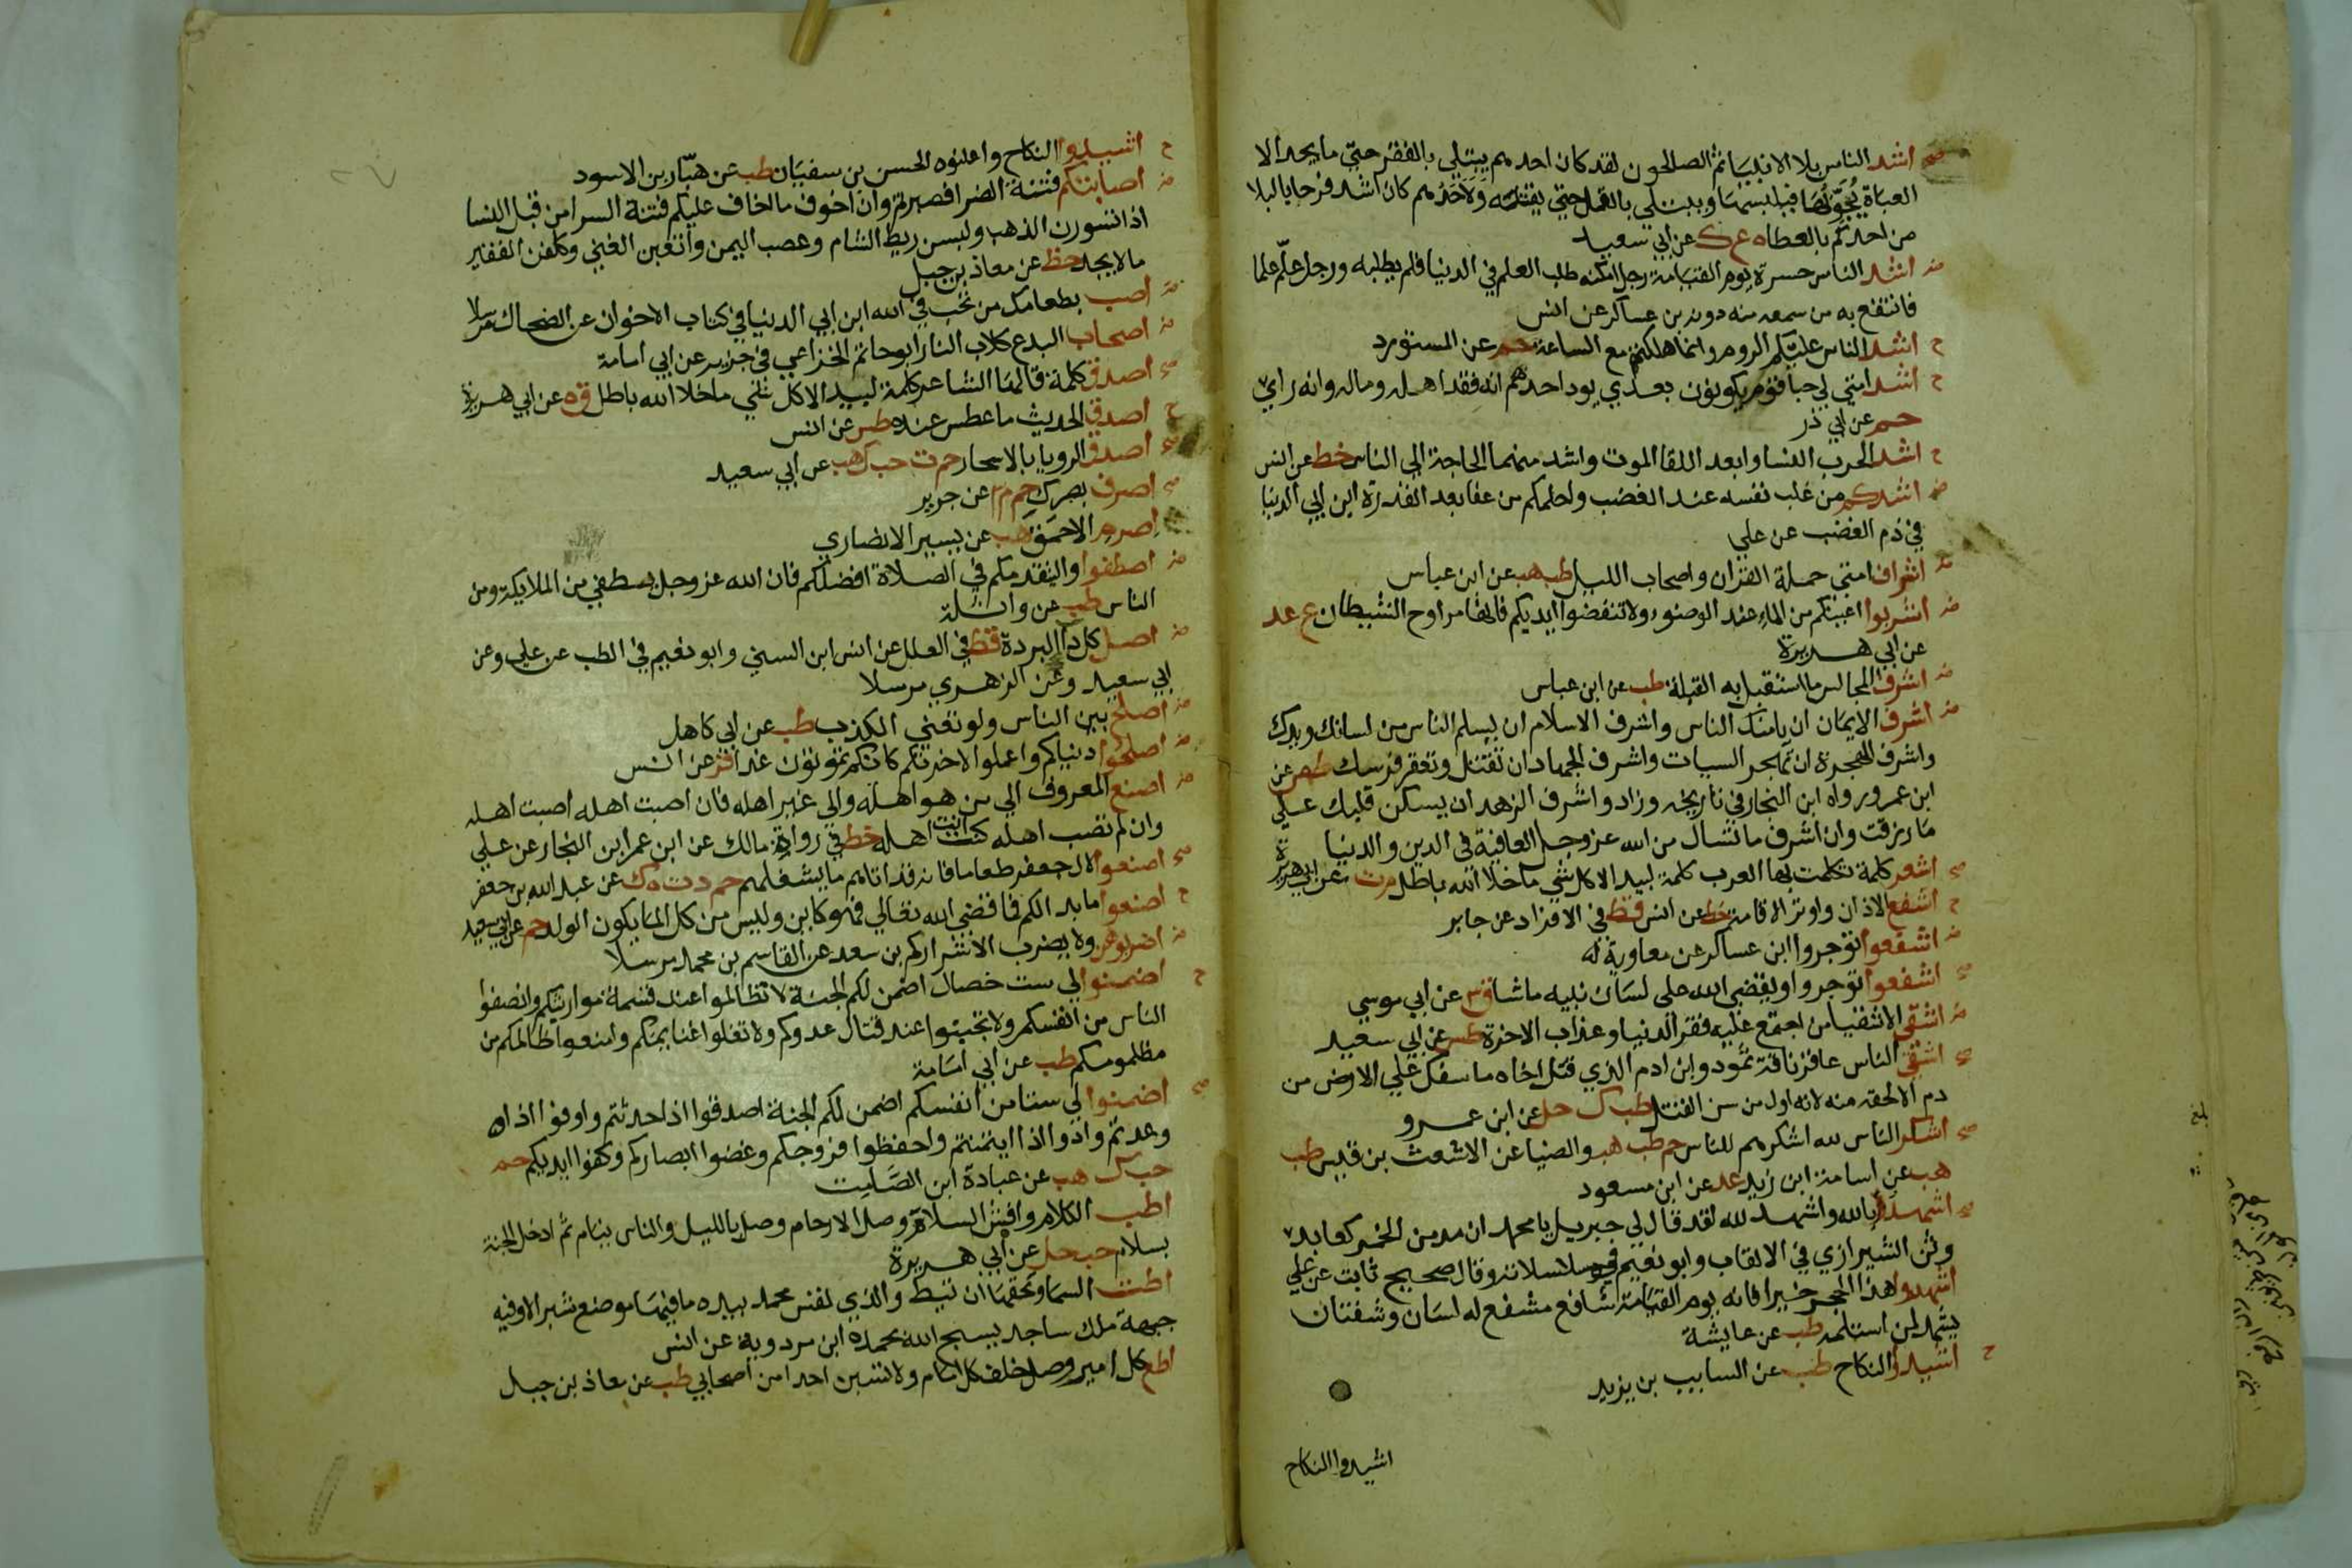 صح اشد الناس بلا الانبيا ثم الصالحون لقد كان احدهم يبتلى بالفقر حتى ما يجد الا
العباة يجوبها فيلبسها ويبتلي بالقمل حتى يقتله ولاحدهم كان اشد فرحا بالبلا
من احدكم بالعطاه ع ك عن ابي سعيد
ض اشد الناس حسرة يوم القيامة رجل امكنه طلب العلم في الدنيا فلم يطلبه ورجل علّم علما
فانتفع به من سمعه منه دونه بن عساكر عن انس
ح اشد الناس عليكم الروم وانما هلكتهم مع الساعة حم عن المستورد
ح اشد امتي لي حبا قوم يكونون بعدي يود احدهم انه فقد اهله وماله وانه راني
حم عن ابي ذر
ح اشد الحرب النسا وابعد اللقا الموت واشد منهما الحاجة الى الناس خط عن انس
ض اشدكم من غلب نفسه عند الغضب واحلمكم من عفا بعد القدرة ابن ابي الدنيا
في ذم الغضب عن علي
ض اشراف امتي حملة القران واصحاب الليل طب هب عن ابن عباس
ض اشربوا اعينكم من الماء عند الوضوء ولا تنفضوا ايديكم فانها مراوح الشيطان ع عد
عن ابي هريرة
ض اشرف المجالس ما استقبل به القبلة طب عن ابن عباس
ض اشرف الايمان ان يامنك الناس واشرف الاسلام ان يسلم الناس من لسانك ويدك
واشرف الهجرة ان تهجر السيات واشرف الجهاد ان تقتل وتعقر فرسك طص عن
ابن عمر ورواه ابن النجار في تاريخه وزاد واشرف الزهد ان يسكن قلبك على
ما رزقت وان اشرف ما تسال من الله عز وجل العافية في الدين والدنيا
صح اشعر كلمة تكلمت بها العرب كلمة لبيد الا كل شي ما خلا الله باطل م ت عن ابي هريرة
ح اشفع الاذان واوتر الاقامة خط عن انس قط في الافراد عن جابر
ض اشفعوا توجروا ابن عساكر عن معاوية
صح اشفعوا توجروا ويقضي الله على لسان نبيه ما شا ق٣ عن ابي موسي
ض اشقى الاشقيا من اجتمع عليه فقر الدنيا وعذاب الاخرة طس عن ابي سعيد
صح اشقى الناس عاقر ناقة ثمود وابن ادم الذي قتل اخاه ما سفك على الارض من
دم الا لحقه منه لانه اول من سن القتل طب ك حل عن ابن عمرو
صح اشكر الناس لله اشكرهم للناس حم طب هب والضيا عن الاشعث بن قيس طب
هب عن اسامة ابن زيد عد عن ابن مسعود
صح اشهد بالله واشهد لله لقد قال لي جبريل يا محمد ان مدمن الخمر كعابد
وثن الشيرازي في الالقاب وابو نعيم في مسلسلاته وقال صحيح ثابت عن علي
اشهدوا هذا الحجر خيرا فانه يوم القيامة شافع مشفع له لسان وشفتان
يشهد لمن استلمه طب عن عايشة
ح اشيدوا النكاح طب عن السايب بن يزيد
اشيدوا النكاح
ح اشيدوا النكاح واعلنوه الحسن بن سفيان طب عن هبّار بن الاسود
ض اصابتكم فتنة الضرا فصبرتم وان اخوف ما اخاف عليكم فتنة السرا من قبل النسا
اذا تسورن الذهب ولبسن ريط الشام وعصب اليمن واتعبن الغني وكلفن الفقير
ما لا يجد خط عن معاذ بن جبل
ض اصب بطعامك من تحب في الله ابن ابي الدنيا في كتاب الاخوان عن الضحاك مرسلا
ض اصحاب البدع كلاب النار ابو حاتم الخزاعي في جزيه عن ابي امامة
صح اصدق كلمة قالها الشاعر كلمة لبيد الا كل شي ما خلا الله باطل ق ه عن ابي هريرة
ح اصدق الحديث ما عطس عنده طس عن انس
صح اصدق الرويا بالاسحار حم ت حب ك هب عن ابي سعيد
صح اصرف بصرك حم م ٣ عن جرير
اصرم الاحمق هب عن يسير الانصاري
ض اصطفوا وليتقدمكم في الصلاة افضلكم فان الله عز وجل يصطفي من الملايكة ومن
الناس طب عن واثلة
ض اصل كل دا البردة قط في العلل عن انس ابن السني وابو نعيم في الطب عن علي وعن
ابي سعيد وعن الزهري مرسلا
ض اصلح بين الناس ولو تعني الكذب طب عن ابي كاهل
ض اصلحوا دنياكم واعملوا لاخرتكم كانكم تموتون غدا فر عن انس
ض اصنع المعروف الى من هو اهله والى غير اهله فان اصبت اهله اصبت اهله
وان لم تصب اهله كنت انت اهله خط في رواة مالك عن ابن عمر ابن النجار عن علي
صح اصنعوا لال جعفر طعاما فانه قد اتاهم ما يشغلهم حم د ت ه ك عن عبد الله بن جعفر
ح اصنعوا ما بدا لكم فما قضى الله تعالى فهو كاين وليس من كل الما يكون الولد حم عن ابي سعيد
ض اضربوهن ولا يضرب الا شراركم بن سعد عن القاسم بن محمد مرسلا
ح اضمنوا لي ست خصال اضمن لكم الجنة لا تظالموا عند قسمة مواريثكم وانصفوا
الناس من انفسكم ولا تجبنوا عند قتال عدوكم ولا تغلوا غنايمكم وامنعوا ظالمكم من
مظلومكم طب عن ابي امامة
صح اضمنوا لي ستا من انفسكم اضمن لكم الجنة اصدقوا اذا حدثتم واوفوا اذا
وعدتم وادوا اذا ايتمنتم واحفظوا فروجكم وغضوا ابصاركم وكفوا ايديكم حم
حب ك هب عن عبادة ابن الصامت
اطب الكلام وافش السلام وصل الارحام وصل بالليل والناس نيام ثم ادخل الجنة
بسلام حب حل عن ابي هريرة
اطت السما وبحقها ان تيط والذي نفس محمد بيده ما فيها موضع شبر الا وفيه
جبهة ملك ساجد يسبح الله بحمده ابن مردويه عن انس
اطع كل امير وصل خلف كل امام ولا تسبن احدا من اصحابي طب عن معاذ بن جبل